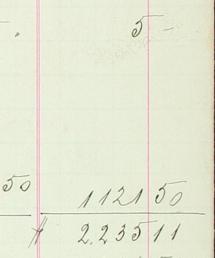 5 -
50 1121 50
# 2.235 11